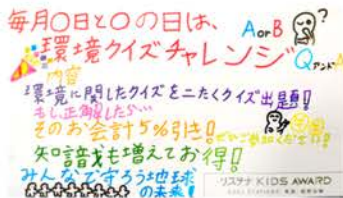 毎月〇日と〇の日は、
AorB ?
環境クイズチャレンジ
Qアンド
内容
環境に関したクイズを二たくクイズ出題!
もし正解したら…
そのお会計5%引き!
ぜひご参加ください!
知識も増えてお得!
みんなで守ろう地球
の未来!
リステナ KIDS AWARD